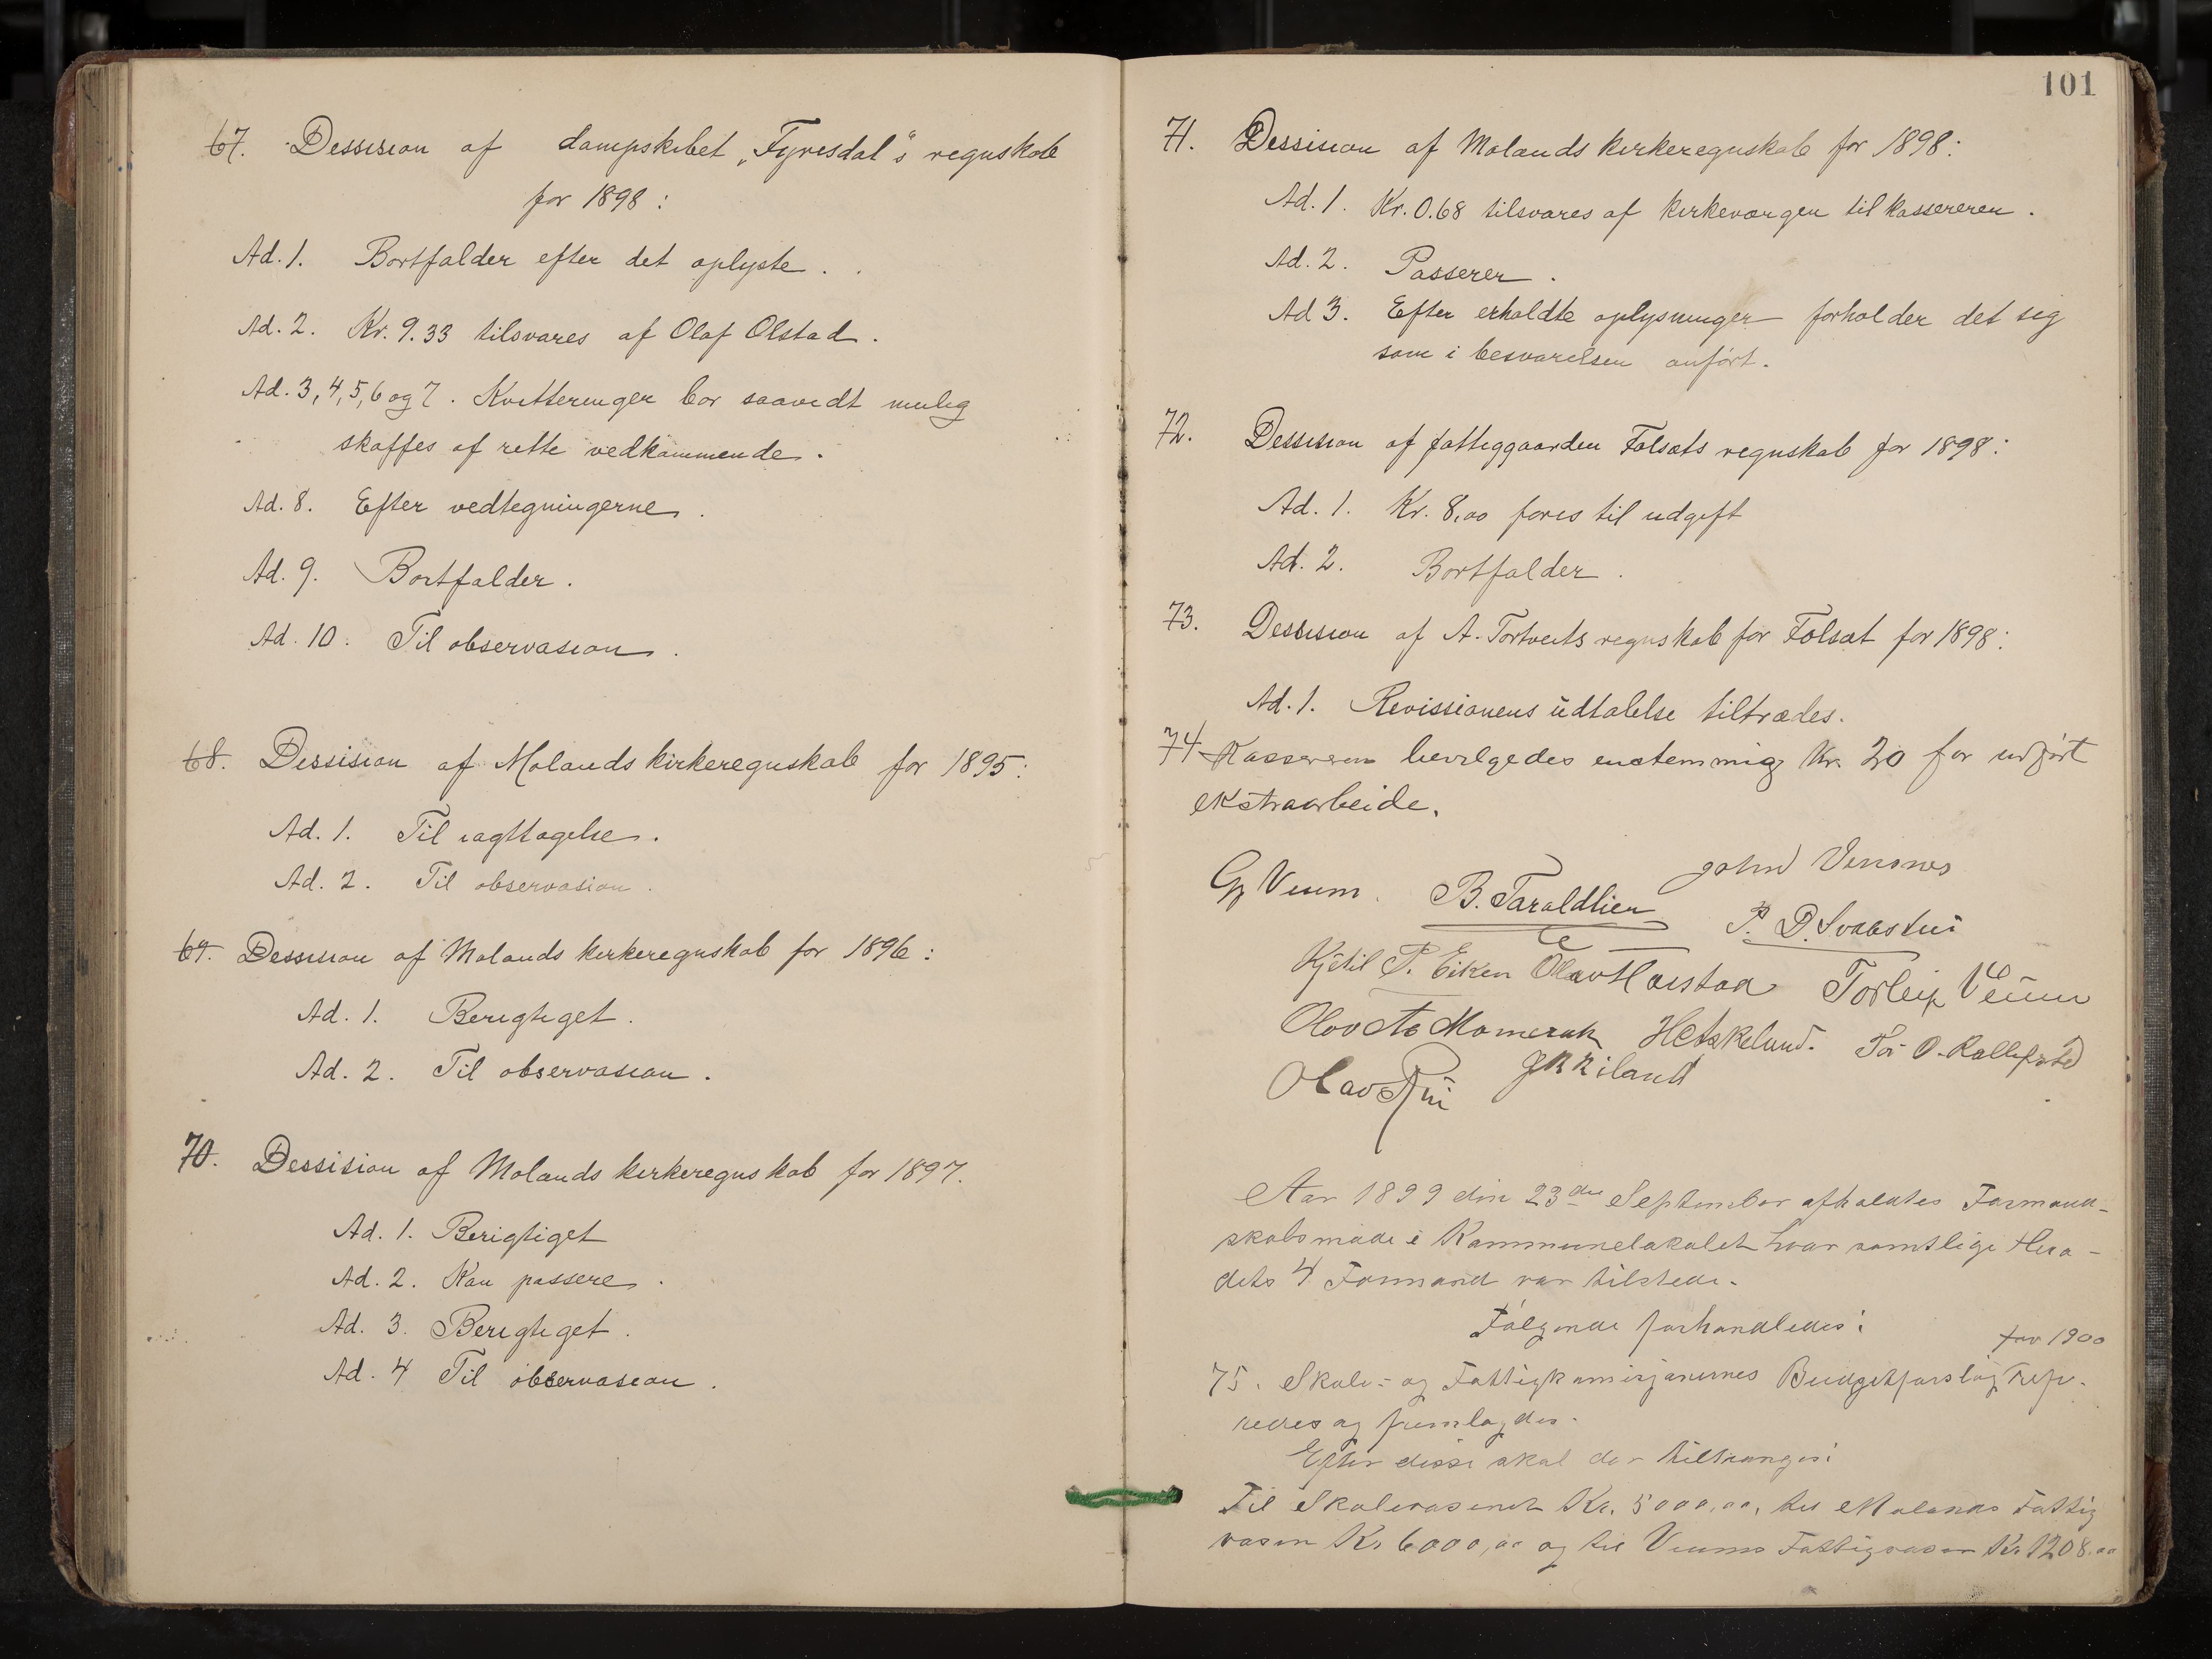 67. Dessision af dampskibet „Fyresdal“s regnskab
for 1898:
Ad. 1. Bortfalder efter det oplyste.
Ad. 2. Kr. 9.33 tilsvares af Olaf Olstad.
Ad. 3, 4, 5, 6 og 7. Kvitteringer bør saavidt mulig
skaffes af rette vedkommende.
Ad. 8. Efter vedtegningerne.
Ad. 9. Bortfalder.
Ad. 10. Til observasion.
68. Dessision af Molands kirkeregnskab for 1895:
Ad. 1. Til iagttagelse.
Ad. 2. Til observasion.
69. Dessision af Molands kirkeregnskab for 1896:
Ad. 1. Berigtiget.
Ad. 2. Til observasion.
70. Dessision af Molands kirkeregnskab for 1897.
Ad. 1. Berigtiget
Ad. 2. Kan passere.
Ad. 3. Berigtiget.
Ad. 4 Til observasion.
101
71. Dessision af Molands kirkeregnskab for 1898:
Ad. 1. Kr. 0.68 tilsvares af kirkeværgen til kassereren.
Ad. 2. Passerer.
Ad 3. Efter erholdte oplysninger forholder det sig
som i besvarelsen anført.
72. Dessision af fattiggaarden Folsæts regnskab for 1898:
Ad. 1. Kr. 8,00 føres til udgift
Ad. 2. Bortfalder.
73. Dessision af A. Tortveits regnskab for Folsæt for 1898:
Ad. 1. Revissionens udtalelse tiltrædes.
74 Kassereren bevilgedes enstemmig Kr. 20 for udført
ekstraarbeide.
John
G Veum. B. Taraldlien P. D. Svaastui
Kjetil P. Eiken Olav Torleif Veum
Olav Momrak Tor O.
Olav
Aar 1899 den 23de September afholdtes Formand-
skabsmøde i Kommunelokalet hvor samtlige Hera-
dets 4 Formænd var tilstede.
Følgende forhandledes:
for 1900
75. Skole- og Fattigkomisjonernes Budgetforslag refe-
redes og fremlagdes.
Efter disse skal der tiltrænges:
Til Skolevæsenet Kr. 5000,00, til Molands Fattig
væsen Kr 6000,00 og til Veums Fattigvæsen Kr. 1208.00